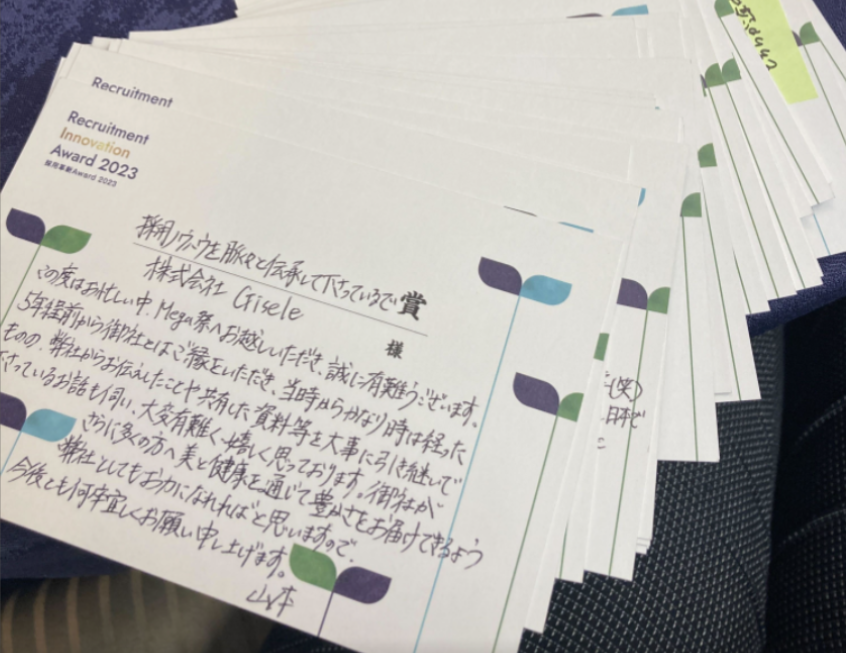 Recruitment
Recruitment
Innovation
Award 2023
採用革新Award 2023
採用ノウハウを脈々と伝承して下さっているで賞
株式会社 Gisele
様
この度はお忙しい中、Mega祭へお越しいただき、誠に有難うございます。
5年程前から御社とはご縁をいただき、当時からかなり時は経った
ものの、弊社からお伝えしたことや共有した資料等を大事に引き継いで
下さっているお話も伺い、大変有難く嬉しく思っております。御社が
さらに多くの方へ美と健康を通じて豊かさをお届けできるよう
弊社としてもお力になれればと思いますので、
今後とも何卒宜しくお願い申し上げます。
山本
(笑)
日本で